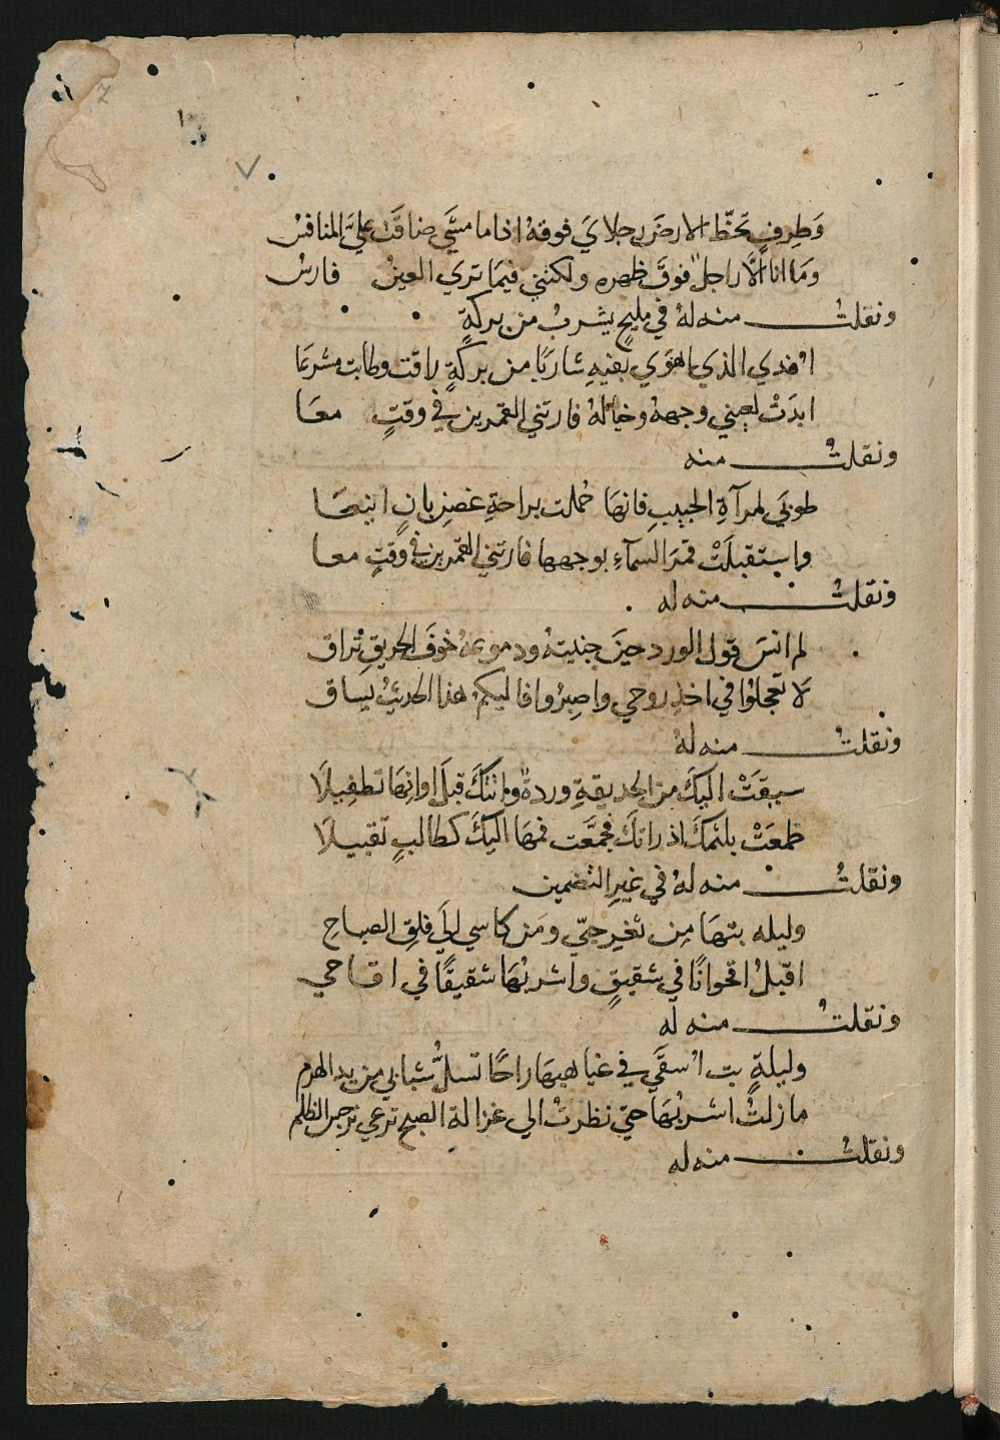 وَطِرفٍ تَخُطّ الارضَ رجلايَ فوقهُ اذا ما مشَي ضاقَت عليَّ المنافسُ
وَمَا انا الَّا راجلٌ فوقَ ظهره ولكنني فيمَا تري العينُ فارسُ
ونقلتُ منه لهُ في مليحٍ يشربُ من بركةٍ
افدي الذي اهوَي بفيهِ شاربًا من بركةٍ راقت وطابت مشرعَا
ابدَتْ لعيني وجههُ وخيالهُ فارتني القمرين في وقتٍ معَا
ونقلتُ منه
طوبَي لمرآةِ الحبيبِ فانهَا حُملت براحةِ غصنِ بانٍ اينعَا
واستقبلَتْ قمرَ السمآءِ بوجهها فارتني القمرين في وقتٍ معا
ونقلتُ منه له
لم انسَ قول الورد حينَ جنيتهُ ودموعهُ خوفَ الحريقِ تُراق
لا تعجلوُا في اخذِ روحي واصبِرُوا فاليكمُ هذا الحديثُ يُساق
ونقلتُ منه لهُ
سبقَتْ اليكَ من الحديقةِ وردةٌ واتتكَ قبلَ اوانِهَا تطفِيلَا
طمعَتْ بلثمكَ اذ راتكَ فجمَّعت فمهَا اليكَ كطالبٍ تقبيلَا
ونقلتُ منه لهُ في غيرِ التضمين
وليله بتهَا مِن ثغرِ حِبّي ومَن كاسي الي فلقِ الصباحِ
اقبلُ اقحوانًا في شقيقٍ واشربُهَا شقيقًا في اقاحي
ونقلتُ منه له
وليلةٍ بت اُسقَي في غياهبهَا راحًا تسلُّ شبابي من يد الهرم
ما زلتُ اشربُهَا حتي نظرتُ الي غزالةِ الصبح ترعي نرجس الظلم
ونقلتُ منه له